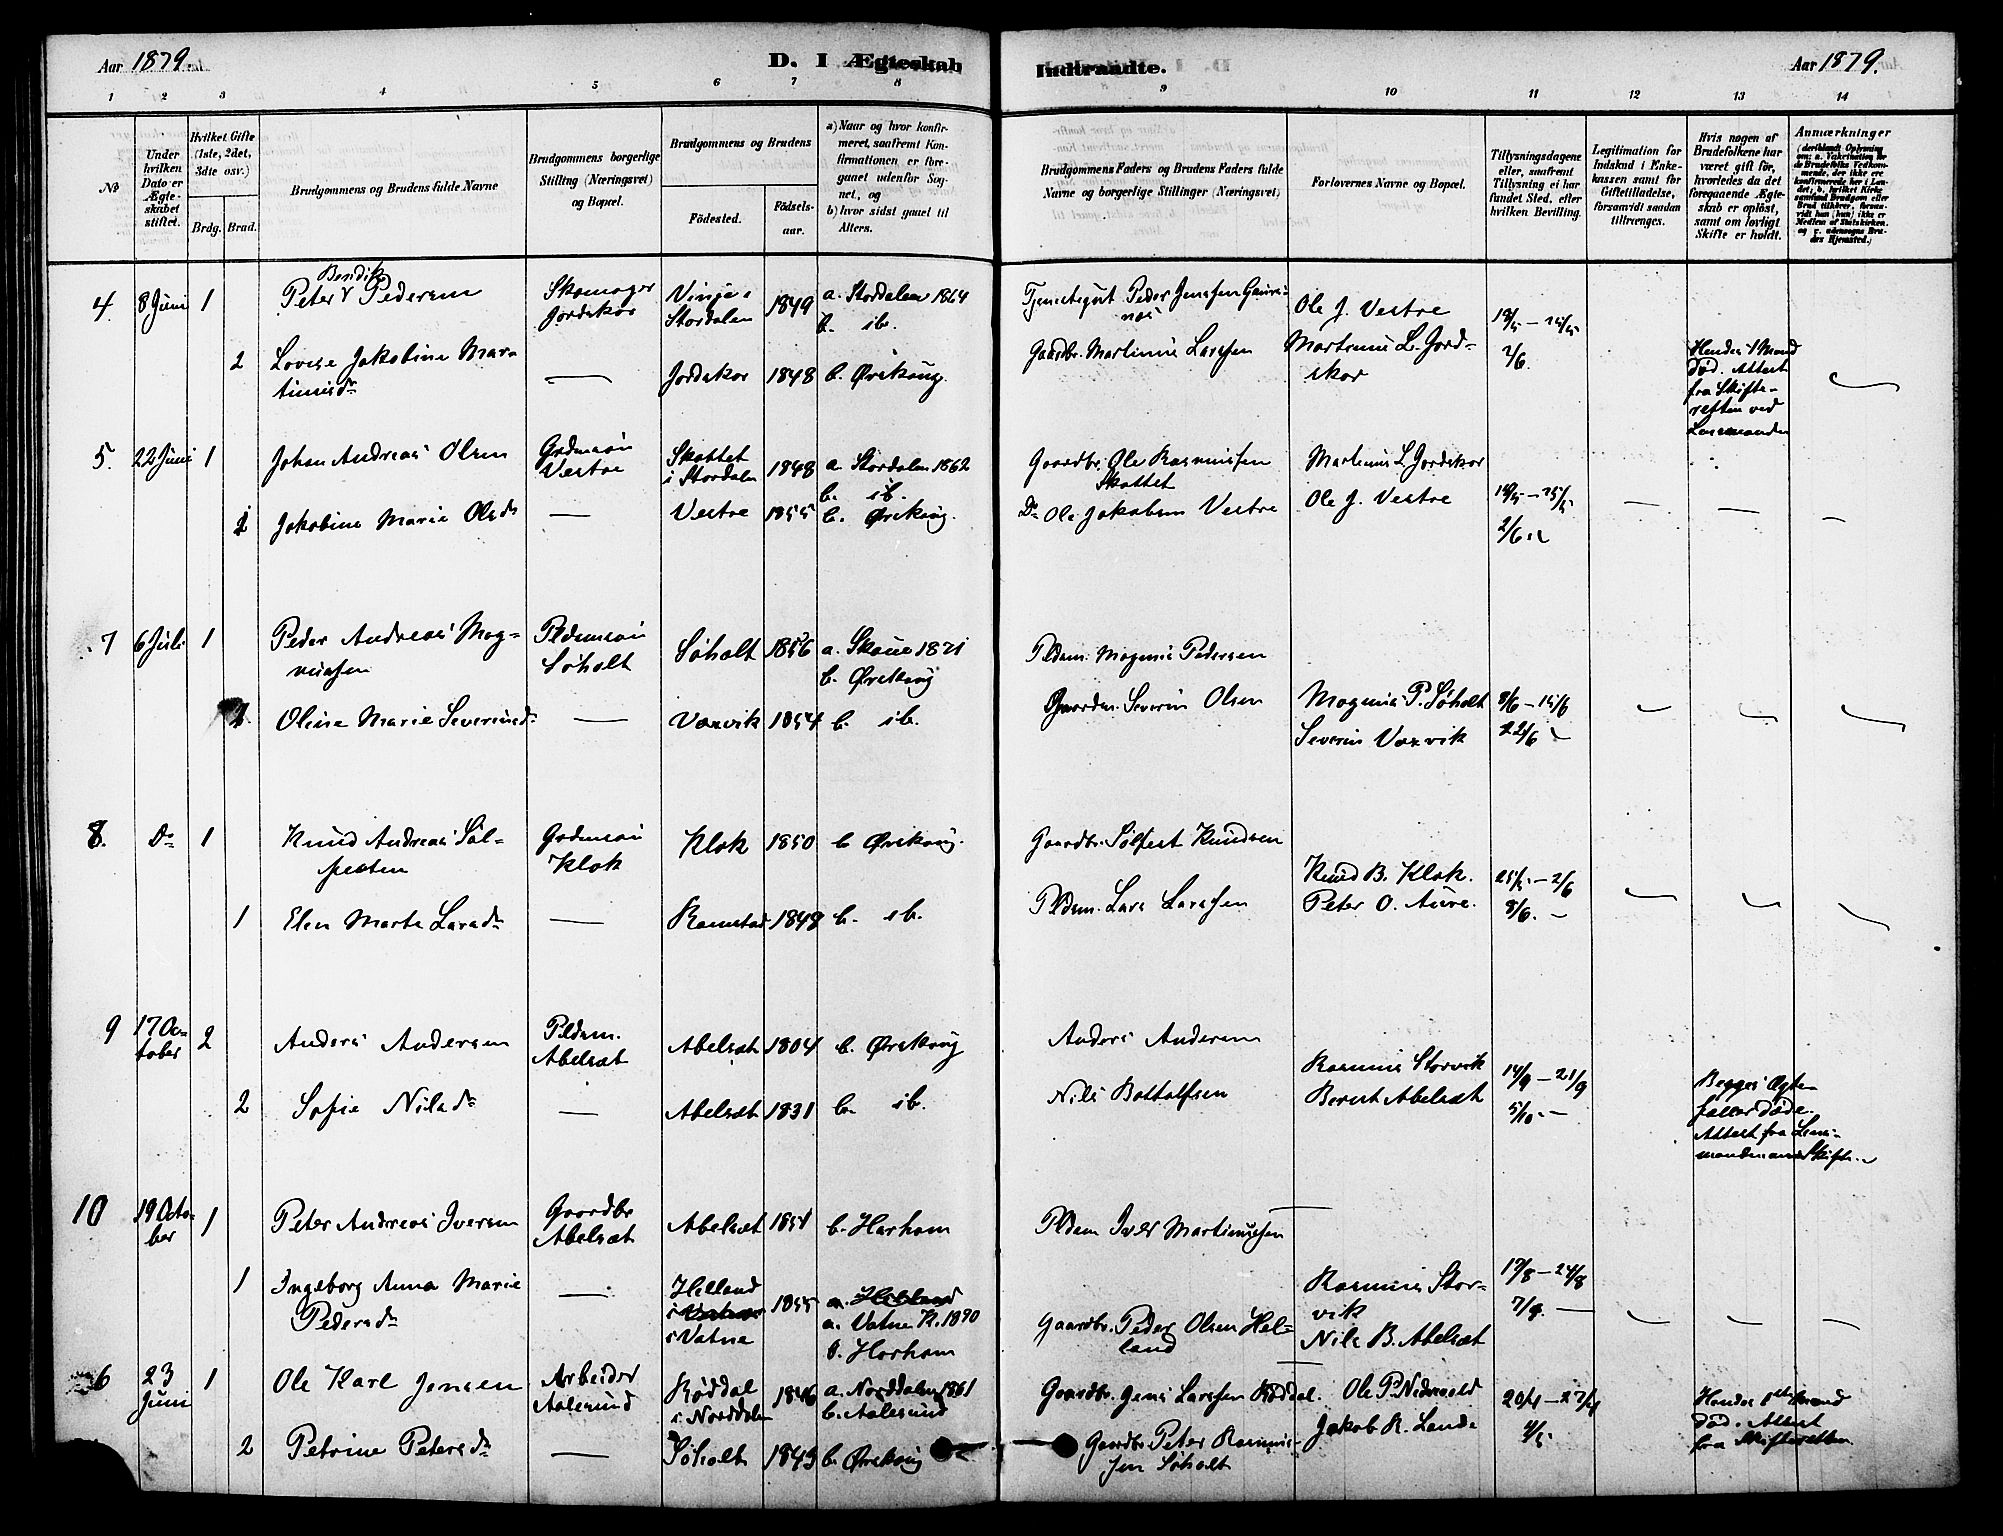 Aar 1879.
D. I Ægteskab
Indtraadte.
Aar 1879.
1 2 3 4 5 6 7 8 9 10 11 12 13 14
No
Under hvilken Dato er Ægteskabet stiftet.
Hvilket Gifte (1ste, 2det, 3dte osv.)
Brdg. Brud.
Brudgommens og Brudens fulde Navne
Brudgommens borgerlige Stilling (Næringsvei) og Bopæl.
Brudgommens og Brudens
Födested.
Födsels-aar.
a) Naar og hvor konfirmeret, saafremt Konfirmationen er foregaaet udenfor Sognet, og
b) hvor sidst gaaet til Alters.
Brudgommens Faders og Brudens Faders fulde Navne og borgerlige Stillinger (Næringsvei).
Forlovernes Navne og Bopæl.
Tillysningsdagene eller, saafremt Tillysning ei har fundet Sted, efter hvilken Bevilling.
Legitimation for Indskud i Enkekassen samt for Giftetilladelse, forsaavidt saadan tiltrænges.
Hvis nogen af Brudefolkene har været gift før, hvorledes da det foregaaende Ægteskab er opløst, samt om lovligt Skifte er holdt.
Anmærkninger
4. 8 Juni 1 Peter Bendik Pedersen Skomager Jordskor Vinje i Stordalen 1849 a. Stordalen 1864 b. ib.
Peder Jenssen Ole J. Vestre 18/5 – 25/5
2 Lovise Jakobine Martinusdr — Jordskor 1848 b. Ørskoug.
Gaardbr. Martinus Larssen Martinus L. Jordskor 2/6. Hendes 1 Mand död. Attest fra Skifteretten ved Lensmanden
5. 22 Juni 1 Johan Andreas Olsen Gdmsøn Vestre Skottet i Stordalen 1848 a. Stordalen 1862 b. ib.
Gaardbr. Ole Rasmussen Skottet Martinus L Jordskor
Jakobine Marie Olsdr — Vestre 1855 b. Ørskoug.
Do Ole Jakobsen Vestre Ole J. Vestre 18/5 – 25/5 2/6
7 6 Juli 1 Peder Andreas Magnussen Pldmsøn Søholt Søholt 1856 a. Skoue 1871 b. Ørskoug
Pldsm. Magnus Pedersen
Oline Marie Severinsdr — Vaxvik 1854 b. ib.
Gaardm. Severin Olsen Magnus P. Søholt 8/6 – 15/6
Severin Vaxvik 22/6 –
8. Do 1 Knud Andreas Sølfesten Gdmsøn Klok Klok 1850 b Ørskoug.
Gaardbr. Sølfest Knudsen
1 Elen Marta Larsdr — Ramstad 1848 b. ib.
Pldsm. Lars Larssen Knud B. Klok. 25/5 – 2/6
Peter O. Aure. 8/6. –
9 17 October 2 Anders Andersen Pldsm. Abelsæt Abelsæt 1804 b. Ørskoug
Anders Andersen
2 Sofie Nilsdr — Abelsæt 1831 b. ib.
Nils Bottolfsen Rasmus Storvik Bernt Abelsæt 14/9 – 21/9 5/10. –
Begges Ægtefæller døde. Attest fra
10 19 October 1 Peter Andreas Iversen Gaardbr Abelsæt Abelsæt 1851 b. Harham
Pldsm Iver Martinussen
1 Ingeborg Anna Marie Pedersdr — Helland i Vatne 1855 a. Vatne K. 1870 b. Harham
Gaardbr. Peder Olsen Helland Rasmus Storvik Nils B. Abelsæt 17/8 – 24/8 7/9. —
6 23 Juni 1 Ole Karl Jensen Arbeider Aalesund Røddal i Norddalen 1846 a. Norddalen 1861 b. Aalesund
Gaardbr. Jens Larssen Røddal. 20/4 – 27/4
2 Petrine Petersdr — Søholt 1843 b. Ørskoug
Gaardbr Peter Rasmussen Søholt Jakob R. Lande 4/5
Hendes 1ste Mand död. Attest fra Skifteretten